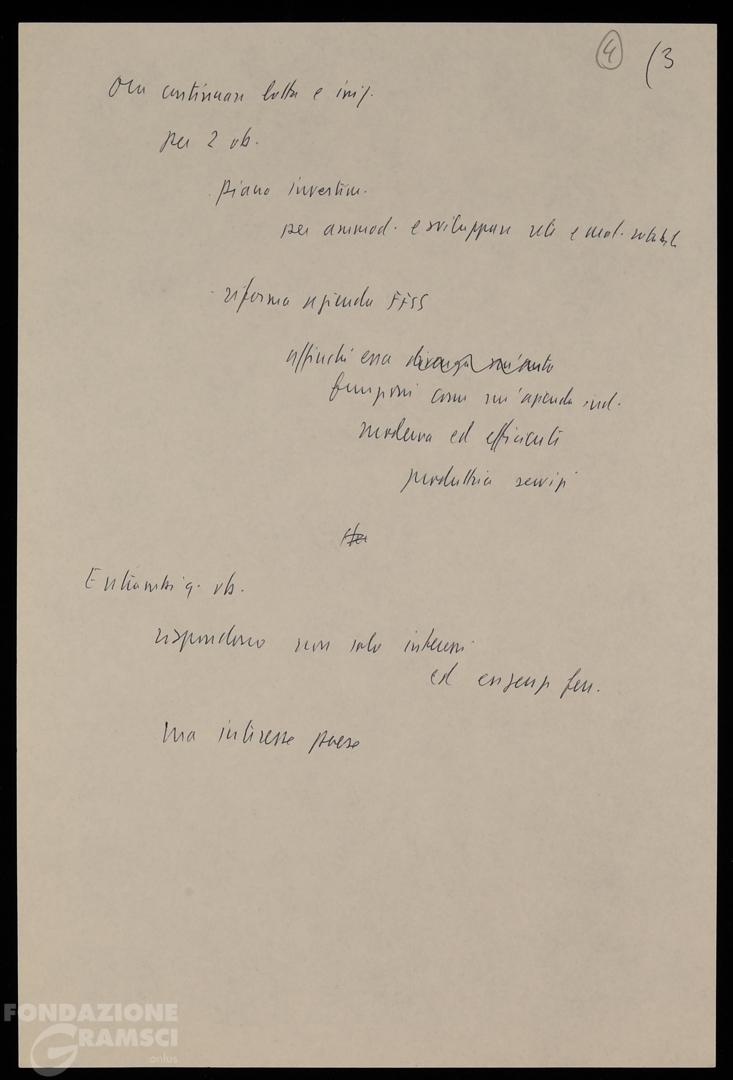 4 (3
Ora continuare lotta e iniz.
per 2 ob.
piano investim.
per ammod. e sviluppare rete e mat. rotabile
- riforma azienda FFSS
affinché essa divenga un'auto
funzioni come un'azienda ind.
moderna ed efficiente
produttrice servizi
Entrambi q. ob.
rispondono non solo interessi
ed esigenze ferr.
ma interesse paese
FONDAZIONE
GRAMSCI
onlus